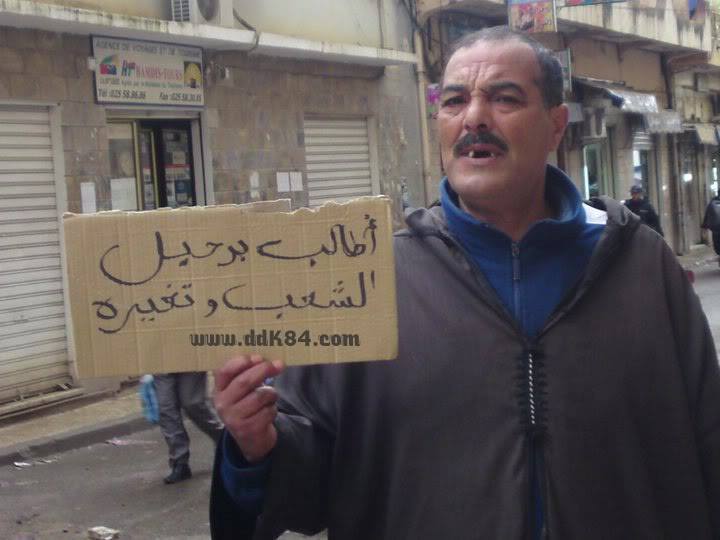 AGENCE DE VOYAGES ET DE TOURISME
HAMIDIS-TOURS
Tél :025 58.86.86 Fax :025 58.30.15
أطالب برحيل
الشعب وتغييره
www.ddK84.com